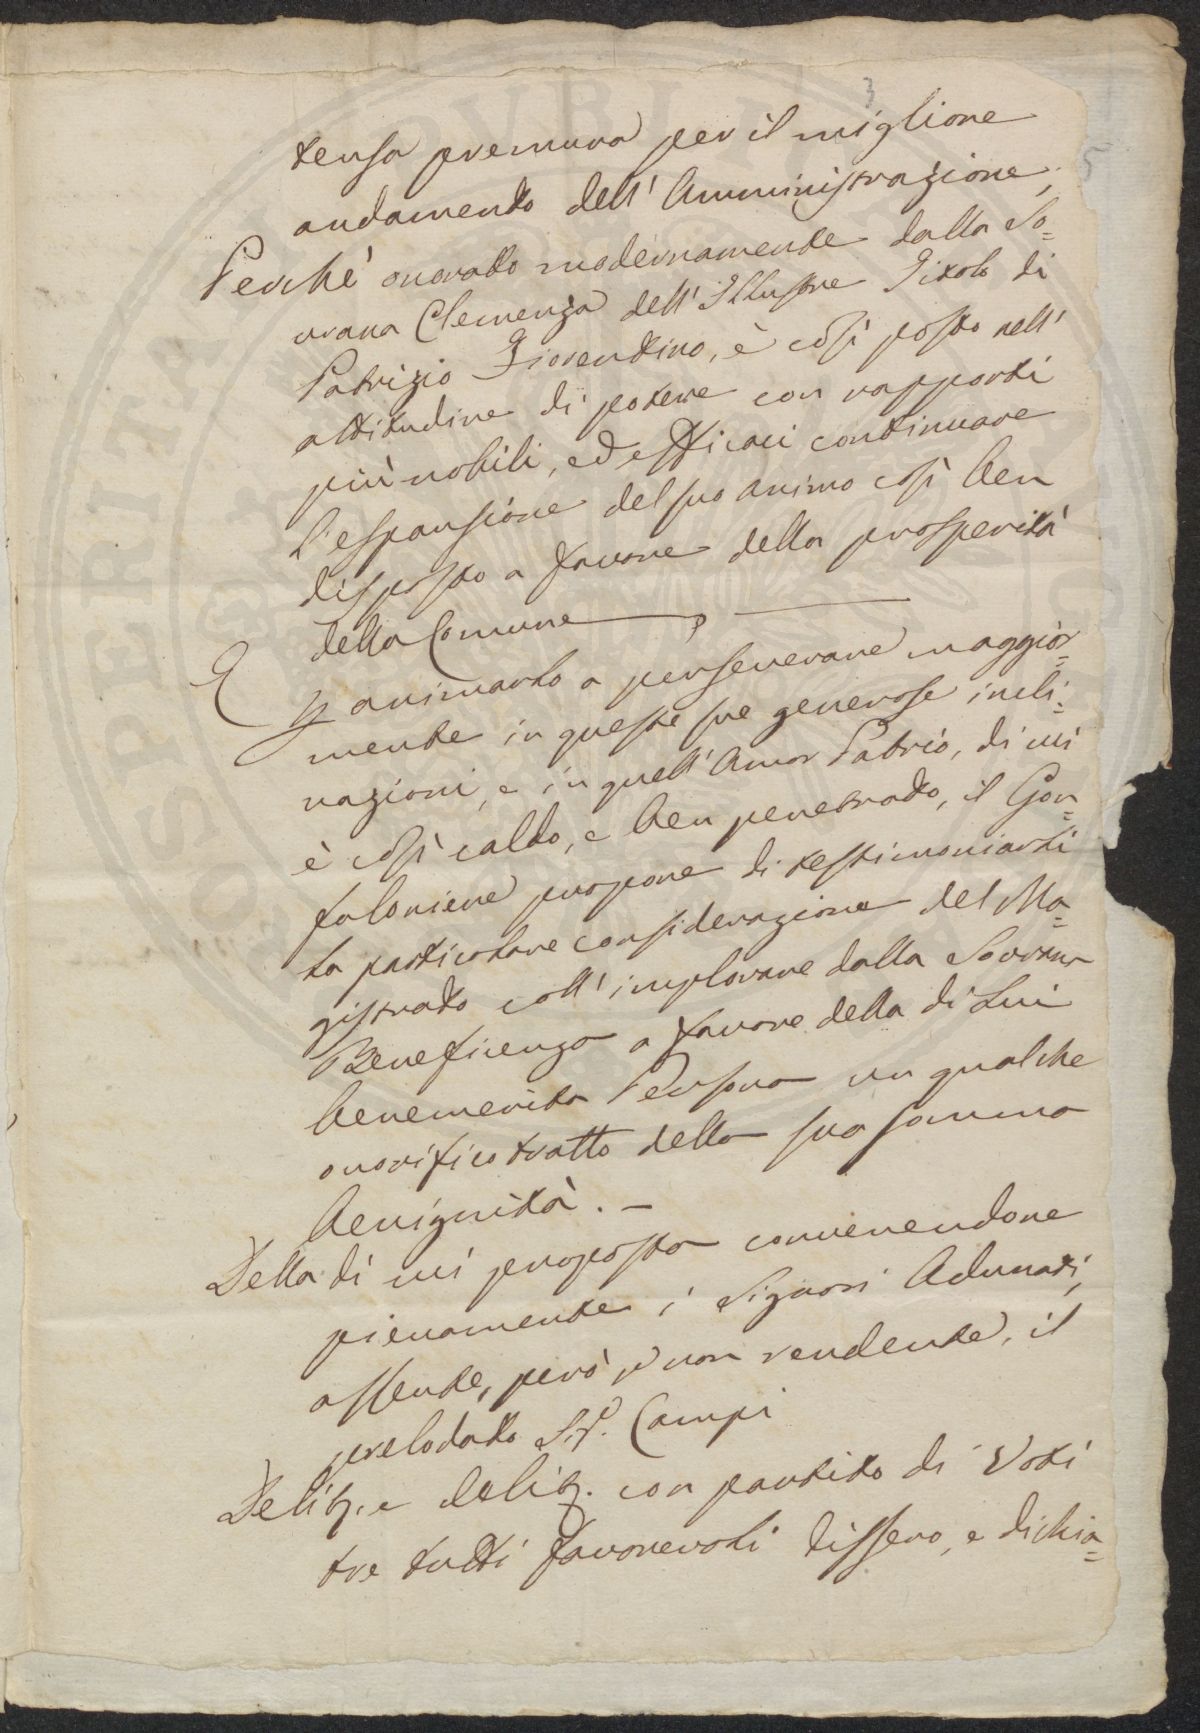 3
5
tensa premura per il migliore
andamento dell' Amministrazione,
Perchè onorato modernamente dalla So=
vrana Clemenza dell' Illustre Titolo di
Patrizio Fiorentino, è così posto nell'
attitudine di potere con rapporti
più nobili, ed efficaci continuare
l'espansione del suo animo così ben
disposto a favore della prosperità
della Comune
E p animarlo a perseverare maggior=
mente in queste sue generose incli=
nazioni, e in quell' Amor Patrio, di cui
è così caldo, e ben penetrato, il Gon=
faloniere propone di testimoniarli
la particolare considerazione del Ma=
gistrato coll' implorare dalla Sovrana
Beneficenza a favore della di Lui
benemerita Persona un qualche
onorifico tratto della sua somma
benignità. —
Della di cui proposta convenendone
pienamente i Signori Adunati,
assente, però, e non rendente, il
prelodato Sig.e Campi
Delib. e delib. con partito di Voti
tre tutti favorevoli dissero, e dichia=